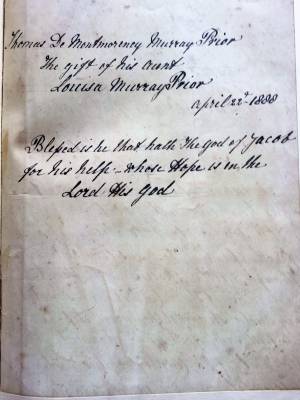 Thomas De Montmorency Murray Prior
The gift of his aunt
Louisa Murray Prior
April 22d 1888
Blessed is he that hath the God of Jacob
for his help - whose Hope is in the
Lord His God